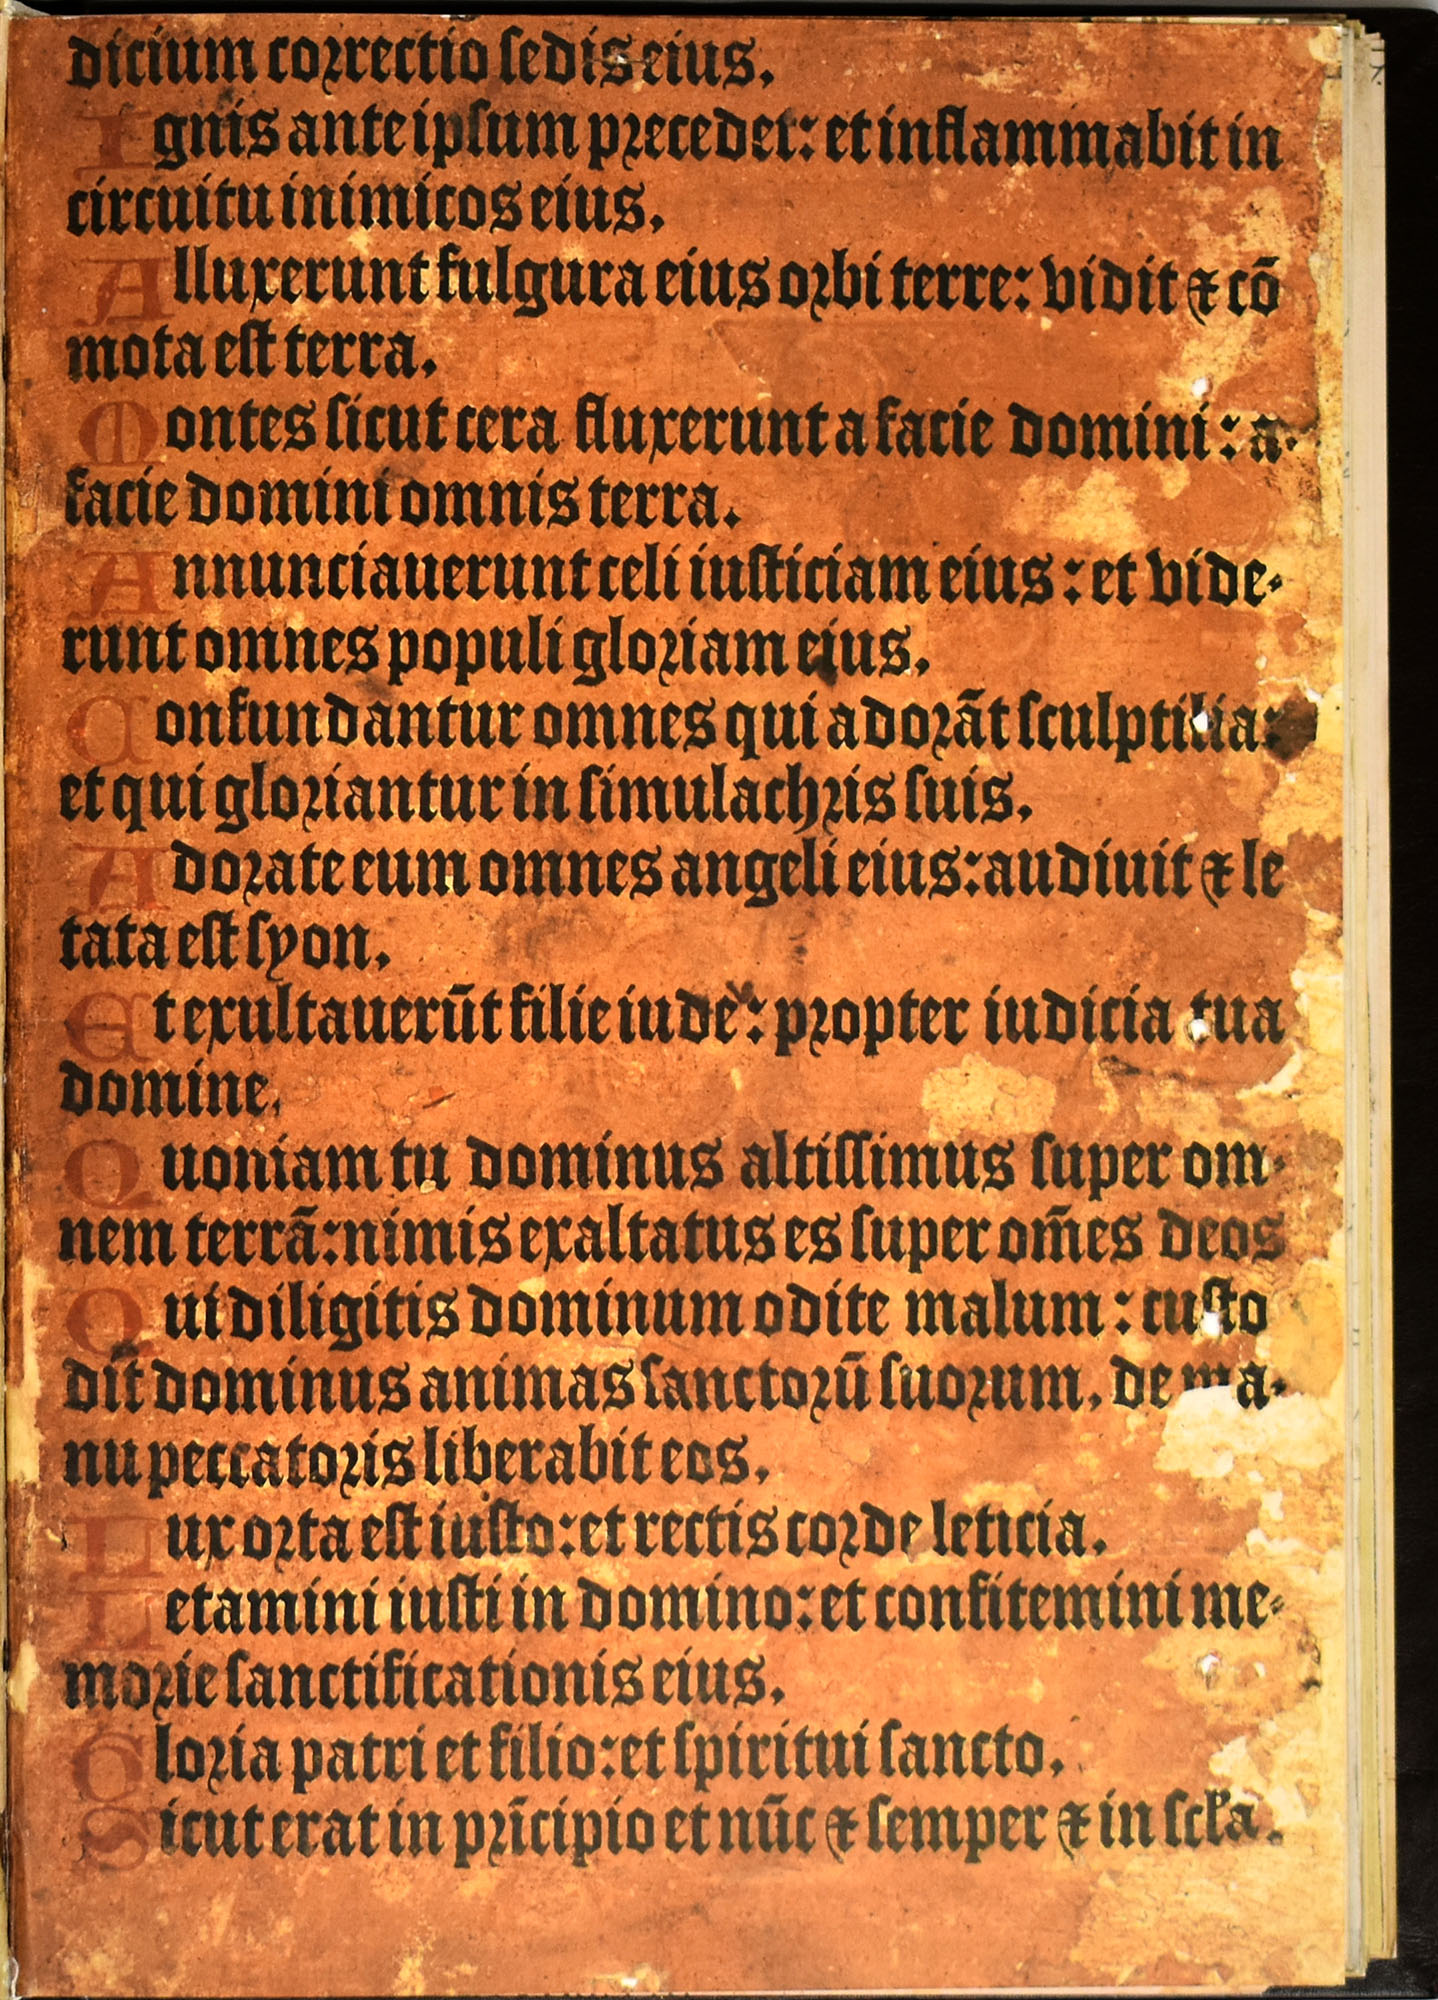 dicium correctio sedis eius.
Ignis ante ipsum precedet: et inflammabit in
circuitu inimicos eius.
Alluxerunt fulgura eius orbi terre: vidit ⁊ cō
mota est terra.
Montes sicut cera fluxerunt a facie domini: a-
facie domini omnis terra.
Annunciauerunt celi iusticiam eius: et vide-
runt omnes populi gloriam eius.
Confundantur omnes qui adorāt sculptilia:
et qui gloriantur in simulachris suis.
Adorate eum omnes angeli eius: audiuit ⁊ le
tata est syon.
Et exultauerūt filie iude: propter iudicia tua
domine.
Quoniam tu dominus altissimus super om-
nem terrā: nimis exaltatus es super om̄es deos
Qui diligitis dominum odite malum: custo
dit dominus animas sanctorū suorum, de ma-
nu peccatoris liberabit eos.
Lux orta est iusto: et rectis corde leticia.
Letamini iusti in domino: et confitemini me-
morie sanctificationis eius.
Gloria patri et filio: et spiritui sancto.
Sicut erat in prīcipio et nūc ⁊ semper ⁊ in scľa.